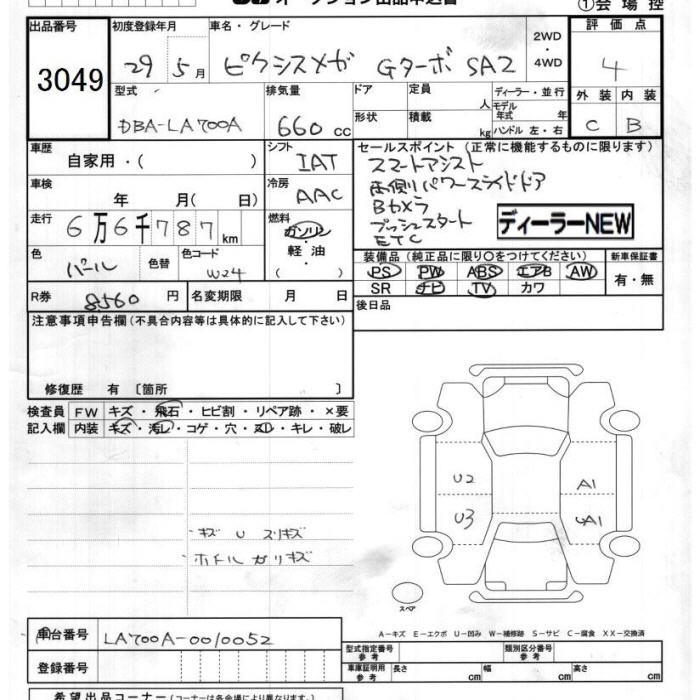 オークション出品申込書
①会 場 控
出品番号 3049
初度登録年月 29 5月
車名・グレード ピクシスメガ Gターボ SA2
2WD
・
4WD
評 価 点 4
型式 DBA-LA700A
排気量 660 cc
ドア
形状
定員 人
積載 kg
ディーラー・並 行
モデル
年式 年
ハンドル 左・右
外 装 内 装
C B
車歴 自家用・( )
シフト IAT
セールスポイント (正常に機能するものに限ります)
スマートアシスト
両側パワースライドドア
Bカメラ
プッシュスタート
ETC
ディーラーNEW
車検 年 月( 日)
冷房 AAC
走行 6万6千787km
燃料 ガソリン
・
軽 油
( )
色 パール 色替
色コード W24
装備品 (純正品に限り○をつけてください)
新車保証書
PS PW ABS エアB AW
SR ナビ TV カワ
有・無
R券 8560 円
名変期限 月 日
後日品
注意事項申告欄 (不具合内容等は具体的に記入して下さい)
修復歴 有 〔箇所 〕
検査員 FW キズ・飛石・ヒビ割・リペア跡・×要
記入欄 内装 キズ・汚レ・コゲ・穴・ヌレ・キレ・破レ
U2 A1
U3 UA1
・キズ U スリキズ
ホイール ガリキズ
スペア
A-キズ E-エクボ U-凹み W-補修跡 S-サビ C-腐食 XX-交換済
車台番号 LA700A-0010052
型式指定番号
参 考
類別区分番号
参 考
登録番号
車庫証明用
参 考
長さ cm 幅 cm 高さ cm
希望出品コーナー (コーナーは各会場により異なります。)